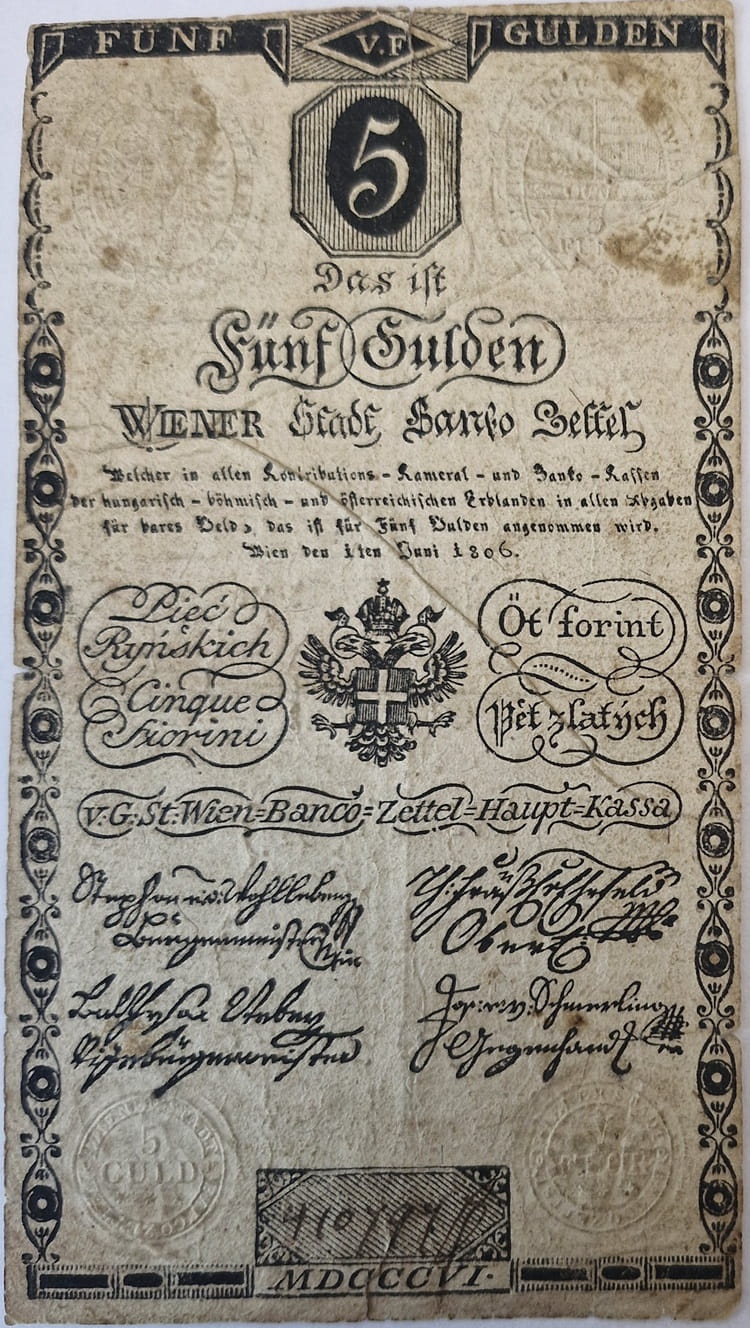 FÜNF V.F GULDEN
5
Das ist
Fünf Gulden
WIENER Stadt Banko Zettel
Welcher in allen Kontributions - Kameral - und Banko - Kassen
der hungarisch - böhmisch - und österreichischen Erblanden in allen Abgaben
für bares Geld, das ist für Fünf Gulden angenommen wird.
Wien den 1ten Juni 1806.
Pięć
Ryńskich
Cinque
Fiorini
Öt forint
Pět zlatých
v: G: St: Wien=Banco=Zettel=Haupt=Kassa
Stephan v: Wohlleben
Burgermeister
Ober
Jos: v: Schmerling
Gegenhand
5
GULD
MDCCCVI.